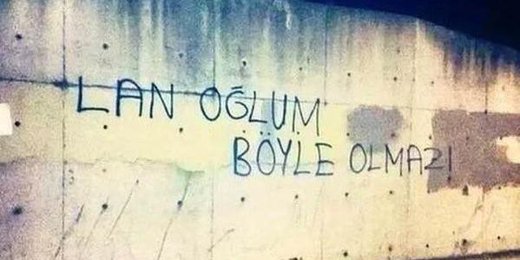 LAN OĞLUM
BÖYLE OLMAZ!